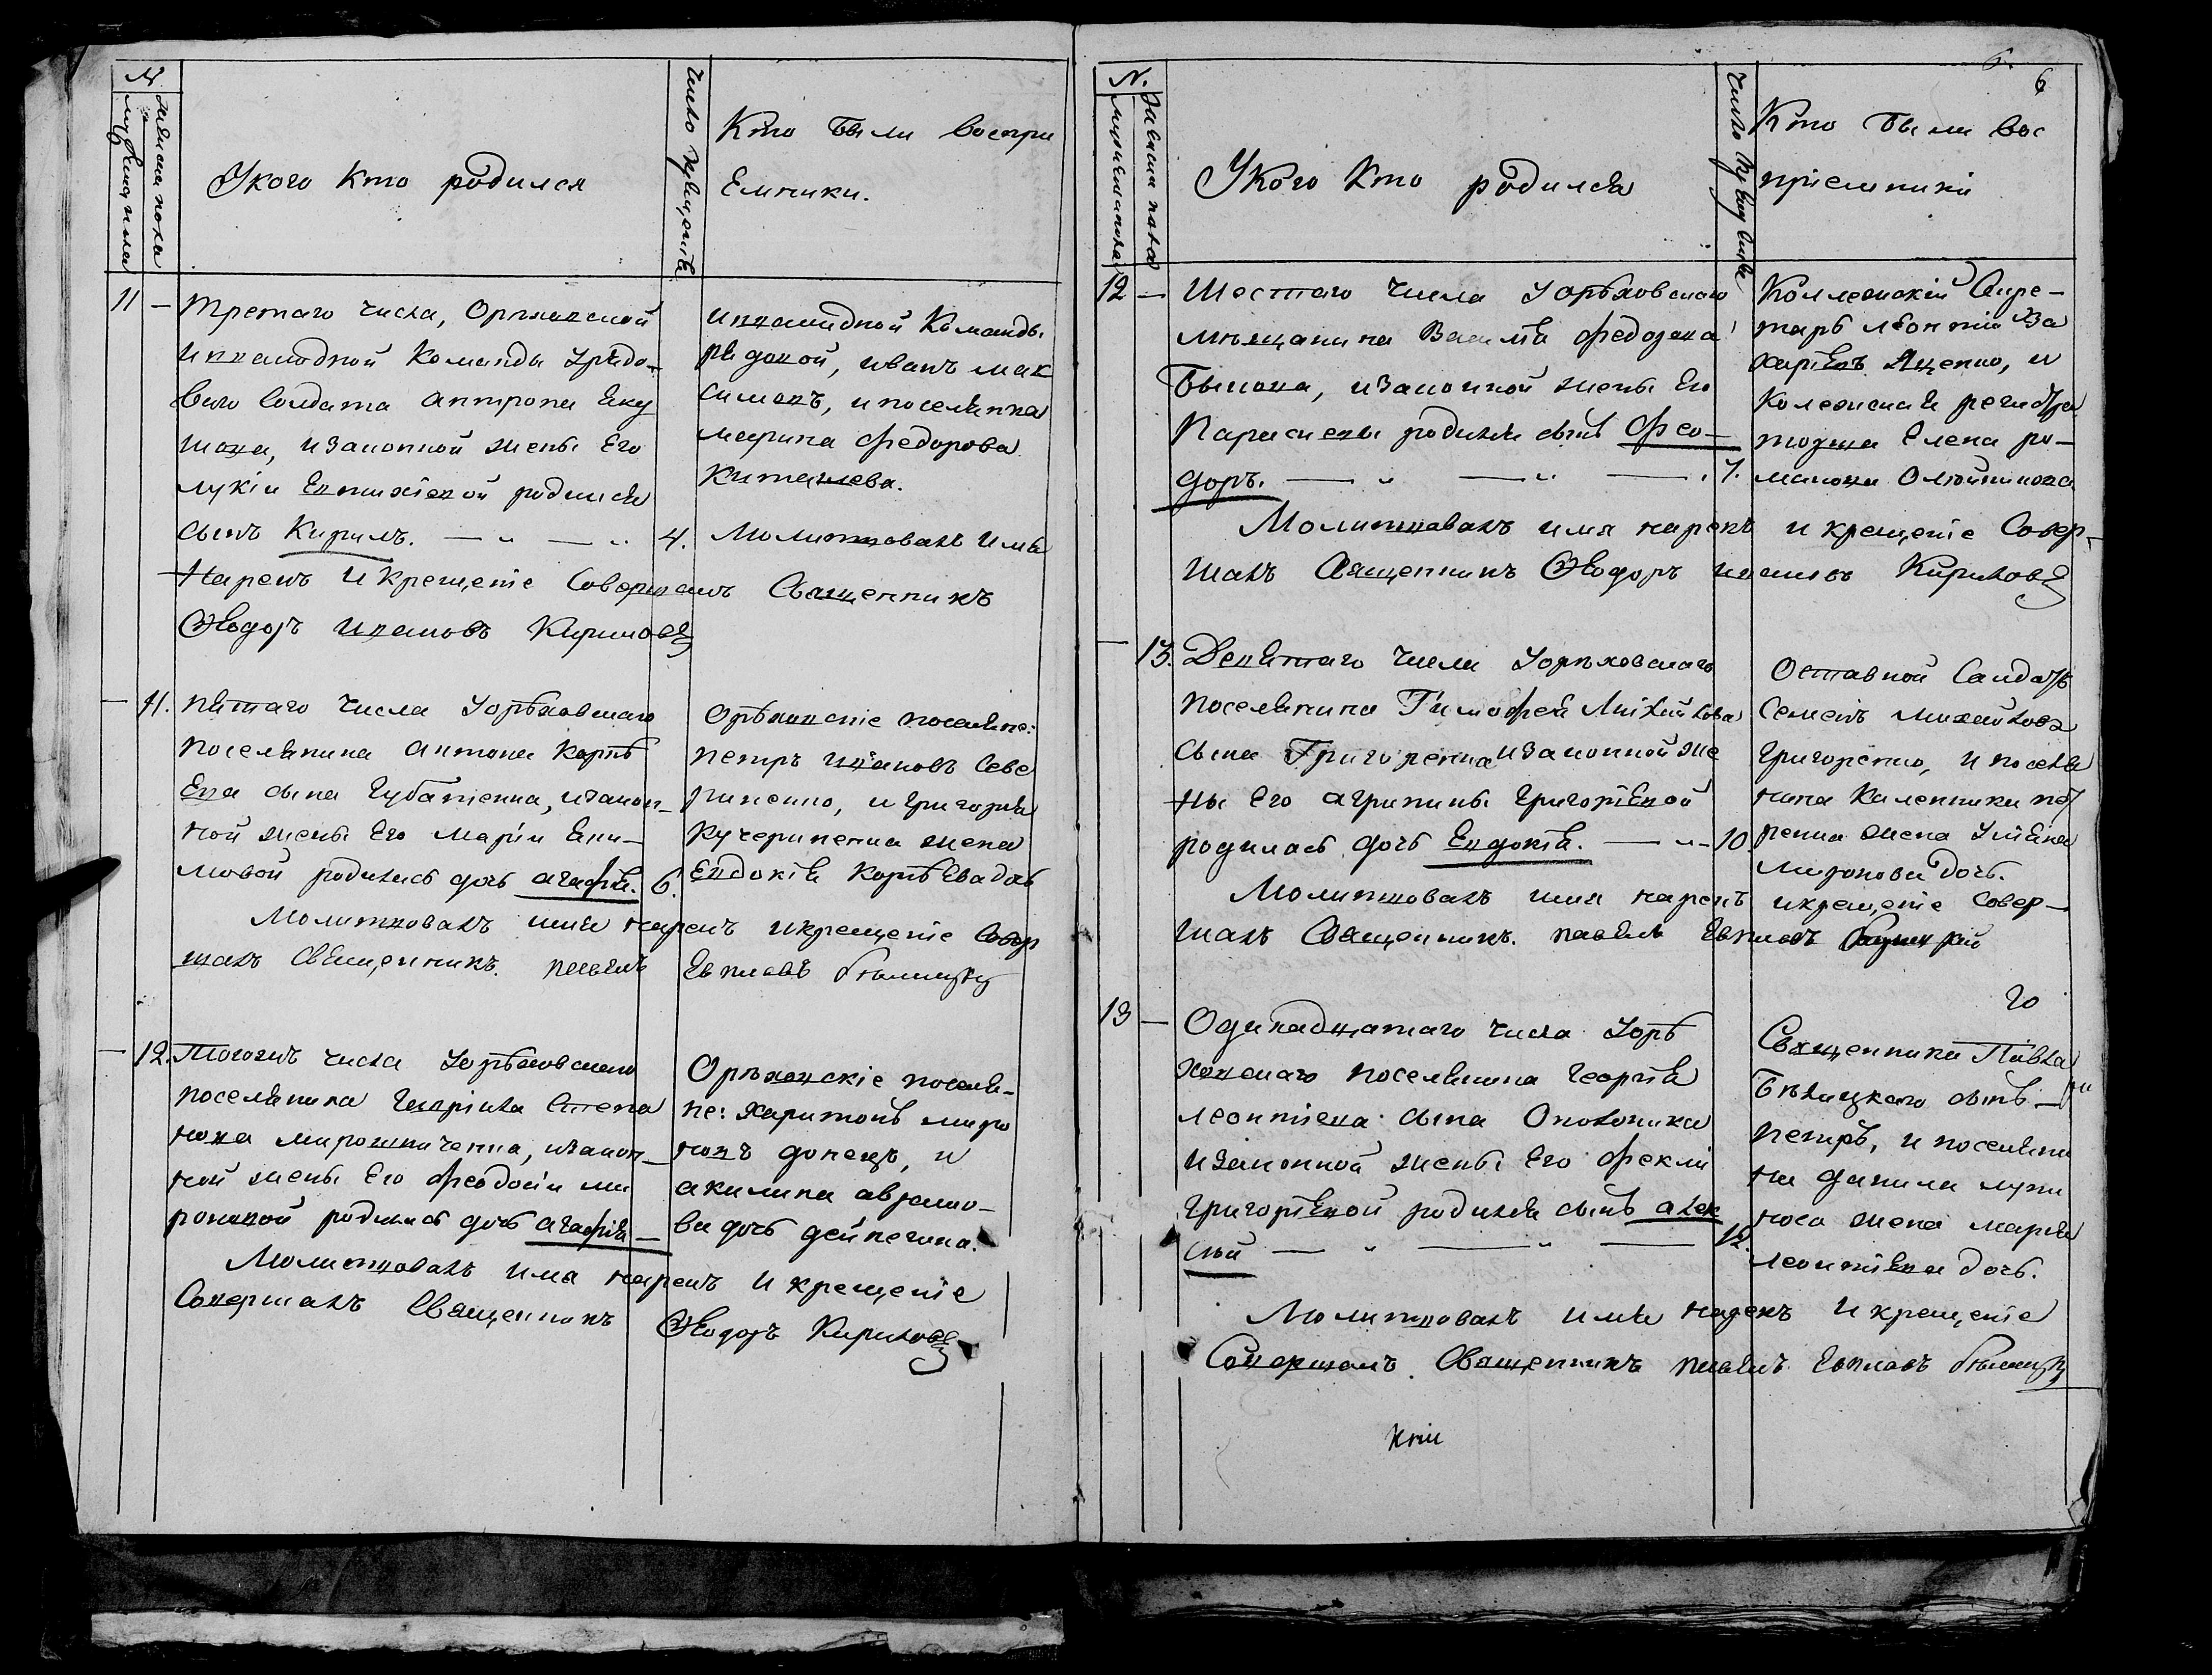 №
мужеска пола
женска пола
У кого кто родился
Число крещенія
Кто были воспри
Емники.
11 — Третаго числа, Ореховской
инвалидной команды Урядо-
ваго Солдата Антропа Яку
шова, и законной жены Его
Лукіи Евтихіевой родился
сынъ Кирилъ. — „ — „ 4.
инвалидной Команды
рядовой, иванъ мак
симовъ, и поселянка
марина Федорова
Китаилева.
Молитвовалъ имя
Нарекъ и крещеніе Совершалъ Священникъ
Ѳеодоръ Ивановъ Кириловъ
— 11. Пятаго числа Уореховскаго
поселянина Антона Корнѣ
Ева сына Губатенка, и закон-
ной жены Его Маріи Еки-
мовой родилась дочь Агафія. 6.
Орѣховскіе поселяне:
петръ ивановъ Севе
риненко, и Григорія
Кучериненка жена
Евдокія Корнѣева дочь
Молитвовалъ имя нарекъ и крещеніе Совер
шалъ Священникъ. павелъ Евпловъ Бѣлицкій
— 12. Тогожъ числа Уорѣховскаго
поселянина Гавріила Степа
нова Мирошниченка, и закон-
ной жены Его Феодосіи ми
роновой родилась дочь Агафія —
Орѣховскіе поселя-
не: Харитонъ миро
новъ донецъ, и
акилина аврамо-
ва дочь дейнегина.
Молитвовалъ имя нарекъ и крещеніе
Совершалъ Священникъ Ѳеодоръ Кириловъ
6. 6
N.
мужеска пола
женска пола
У кого кто родился
Число крещенія
Кто были вос
пріемники
12 — Шестаго числа Уорѣховскаго
мѣщанина Василія Федорова
Быкова, и законной жены Его
Параскевы родился сынъ Фео-
доръ. — „ — „ — . 7.
Коллежскій Секре-
тарь Леонтій За
харіевъ Яценко, и
Колежская регистра
торша Елена ро-
манова Олѣйникова
Молитвовалъ имя нарекъ и крещеніе Совер-
шалъ Священникъ Ѳеодоръ ивановъ Кириловъ
— 13. Девятаго числа Уорѣховскаго
поселянина Тимофея Михайлова
сына Григоренка и законной же
ны Его агрипины Григоріевой
родилась дочь Евдокія. — „ — 10.
Оставной Салдатъ
Семенъ Михайловъ
Григоренко, и поселя
нина Каленника
ренка жена Уліяна
Миронова дочь.
Молитвовалъ имя нарекъ и крещеніе Совер-
шалъ Священникъ. павелъ Евпловъ
13 — Одинадцатаго числа Уорѣ
ховскаго поселянина Георгія
леонтіева сына Ополоника
и законной жены Его Феклы
Григоріевой родился сынъ алек
сѣй — „ — „ — 12.
го
Священника Павла
Бѣлицкаго сынъ —
петръ, и поселяни
на данила лупи
носа жена марія
леонтіева дочь.
Молитвовалъ имя нарекъ и крещеніе
Совершалъ. Священникъ павелъ Евпловъ Бѣлицкій